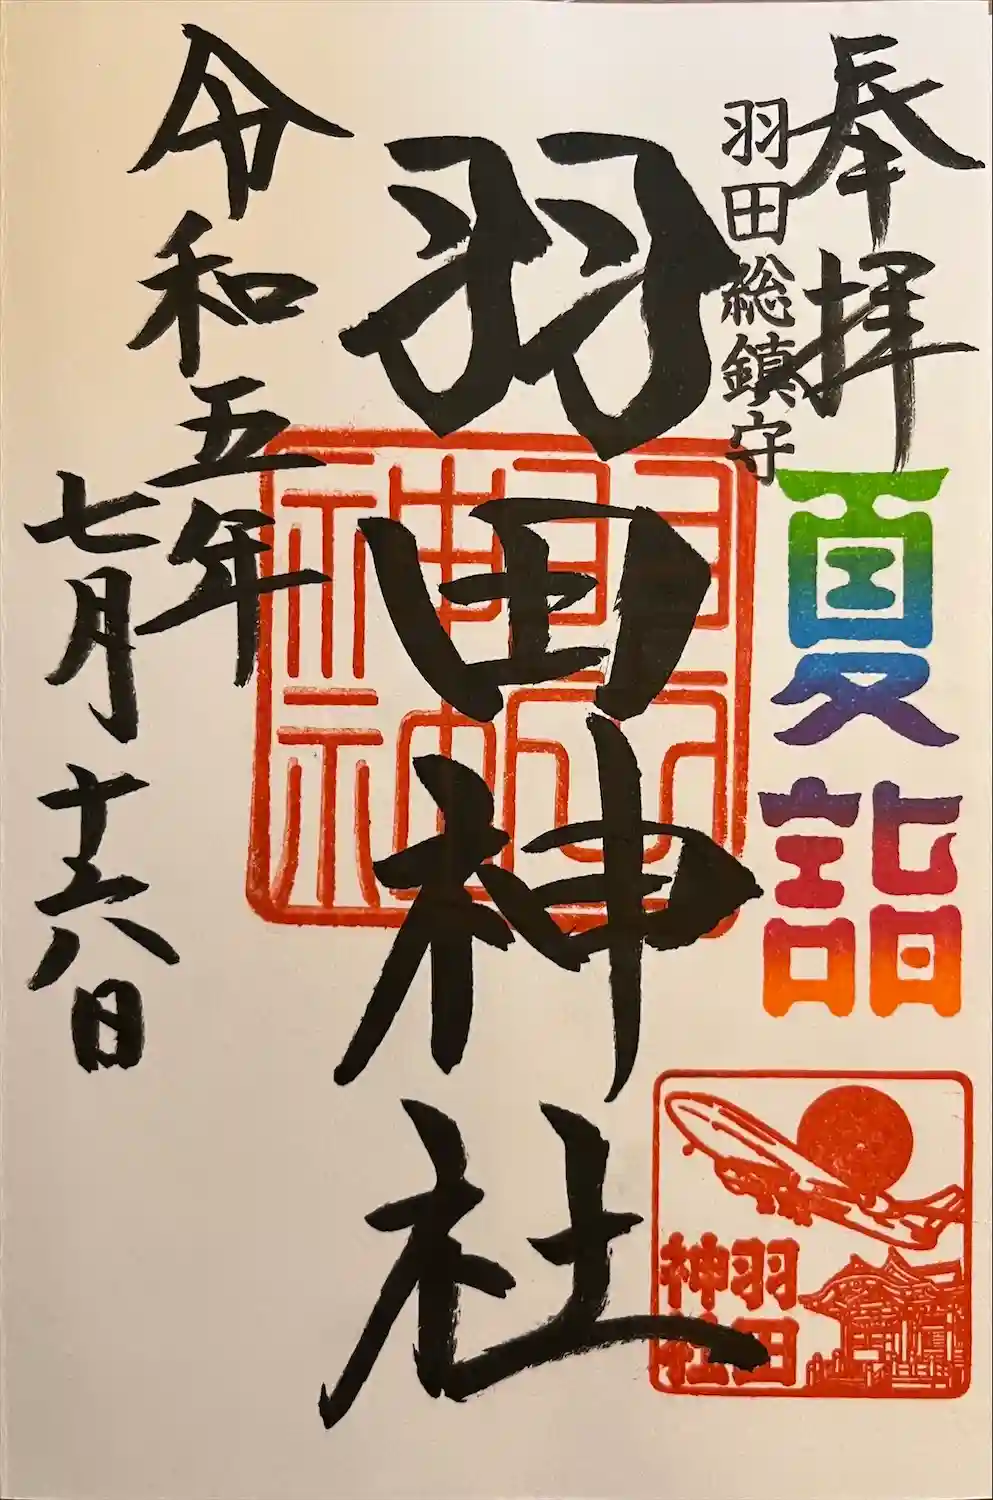 奉拝
羽田総鎮守
夏詣
羽田神社
令和五年
七月十六日
羽田
神社